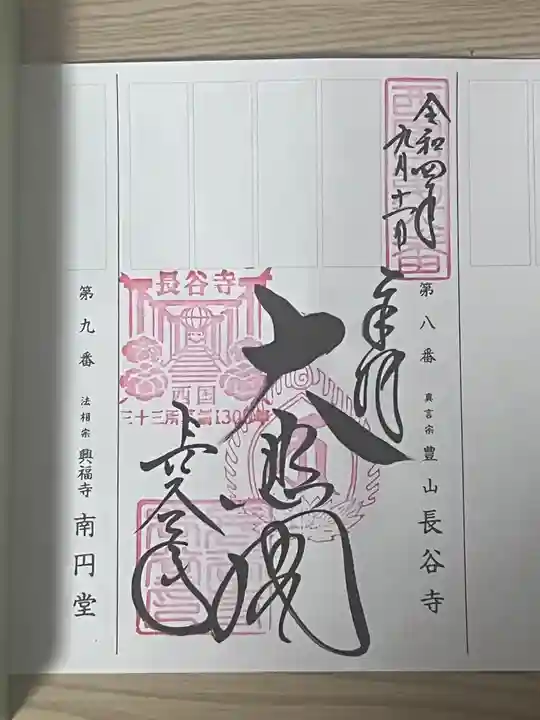 第八番 真言宗 豊山 長谷寺
令和四年
九月十一日
奉拝
大悲閣
長谷寺
長谷寺
西国
三十三所
第九番 法相宗 興福寺 南円堂